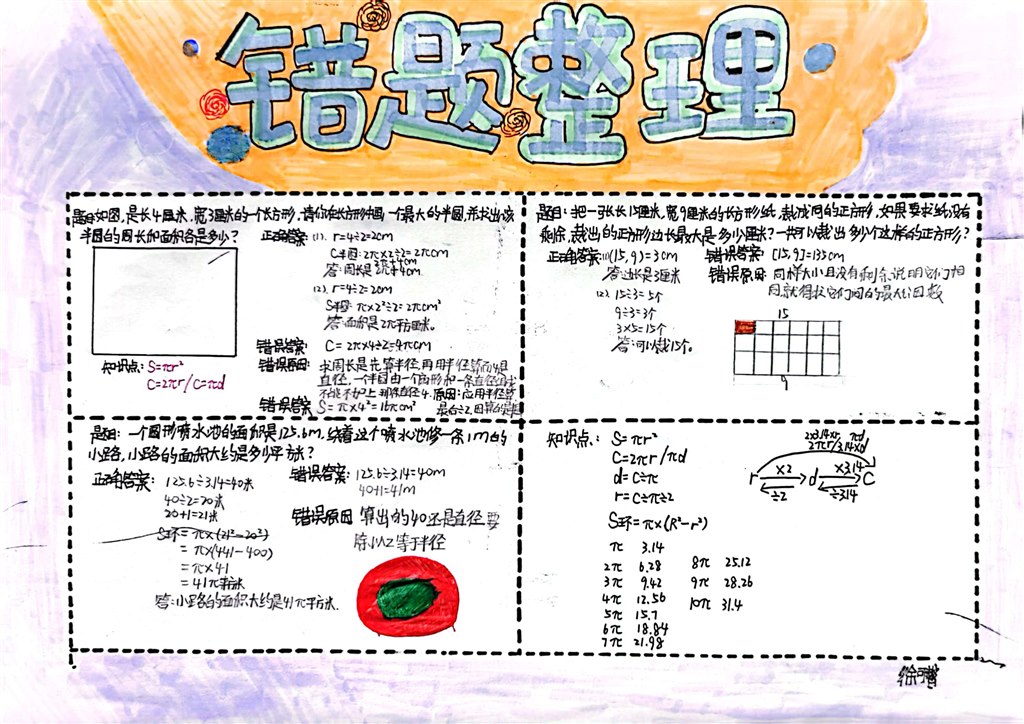 错题整理
题目:如图,是长4厘米,宽3厘米的一个长方形,请你在长方形中画一个最大的半圆,并求出该
半圆的周长和面积各是多少?
正确答案:(1). r=4÷2=2cm
C半圆:2π×2÷2=2πcm
2π+4cm
答:周长是2π+4cm
(2). r=4÷2=2cm
S半圆:π×2²÷2=2πcm²
答:面积是2π平方厘米。
错误答案: C=2π×4÷2=4πcm
错误原因:求周长是先算半径,再用半径算
直径,一个半圆由一个
知识点: S=πr²
C=2πr/C=πd
错误答案 S=π×4²=16πcm²
原因:应用半径算
题目:把一张长15厘米,宽9厘米的长方形纸,裁成同的正方形,如果要求纸没有
剩余,裁出的正方形边长最大是多少厘米?一共可以裁出多少个这样的正方形?
正确答案:(1)(15,9)=3cm
答:边长是3厘米
(2). 15÷3=5个
9÷3=3个
3×5=15个
答:可以裁15个。
错误答案: [15,9]=135cm
错误原因: 同样大小且没有剩余,说明它们相
同,就得找它们间的最大公因数
15
9
题目:一个圆形喷水池的面积是125.6m,绕着这个喷水池修一条1m的
小路,小路的面积大约是多少平方米?
正确答案: 125.6÷3.14=40米
40÷2=20米
20+1=21米
S环=π×(21²-20²)
=π×(441-400)
=π×41
=41π平方米
答:小路的面积大约是41π平方米.
错误答案: 125.6÷3.14=40m
40+1=41m
错误原因 算出的40还是直径要
除以2等于半径
知识点: S=πr²
C=2πr/πd
d=C÷π
r=C÷π÷2
S环=π×(R²-r²)
2×3.14×r πd
2πr/3.14×d
r ×2 d ×3.14 C
÷2 ÷3.14
π 3.14
2π 6.28
3π 9.42
4π 12.56
5π 15.7
6π 18.84
7π 21.98
8π 25.12
9π 28.26
10π 31.4